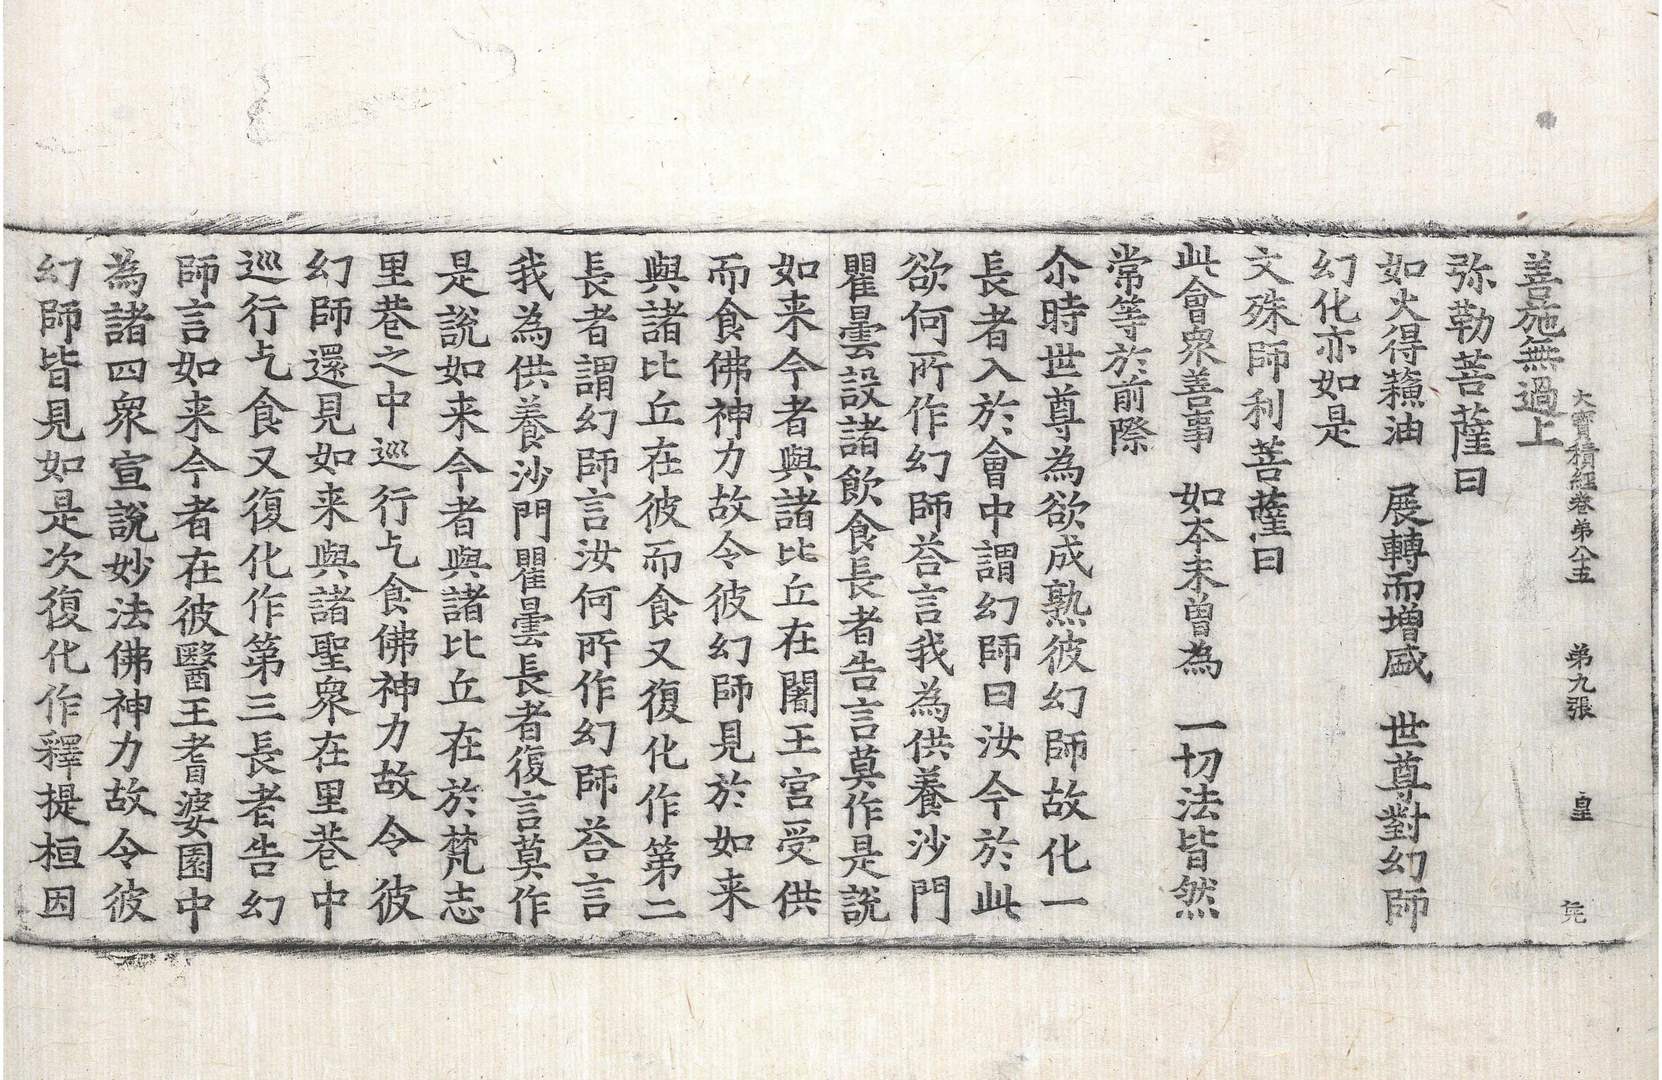 大寶積經卷第八十五 第九張 皇
善施無過上
弥勒菩薩曰
如火得蘓油 展轉而增盛 世尊對幻師
幻化亦如是
文殊師利菩薩曰
此會衆善事 如本未曾為 一切法皆然
常等於前際
尒時世尊為欲成熟彼幻師故化一
長者入於會中謂幻師曰汝今於此
欲何所作幻師荅言我為供養沙門
瞿曇設諸飲食長者告言莫作是說
如来今者與諸比丘在闍王宮受供
而食佛神力故令彼幻師見於如来
與諸比丘在彼而食又復化作第二
長者謂幻師言汝何所作幻師荅言
我為供養沙門瞿曇長者復言莫作
是說如来今者與諸比丘在於梵志
里巷之中巡行乞食佛神力故令彼
幻師還見如来與諸聖衆在里巷中
巡行乞食又復化作第三長者告幻
師言如来今者在彼醫王耆婆園中
為諸四衆宣說妙法佛神力故令彼
幻師皆見如是次復化作釋提桓因